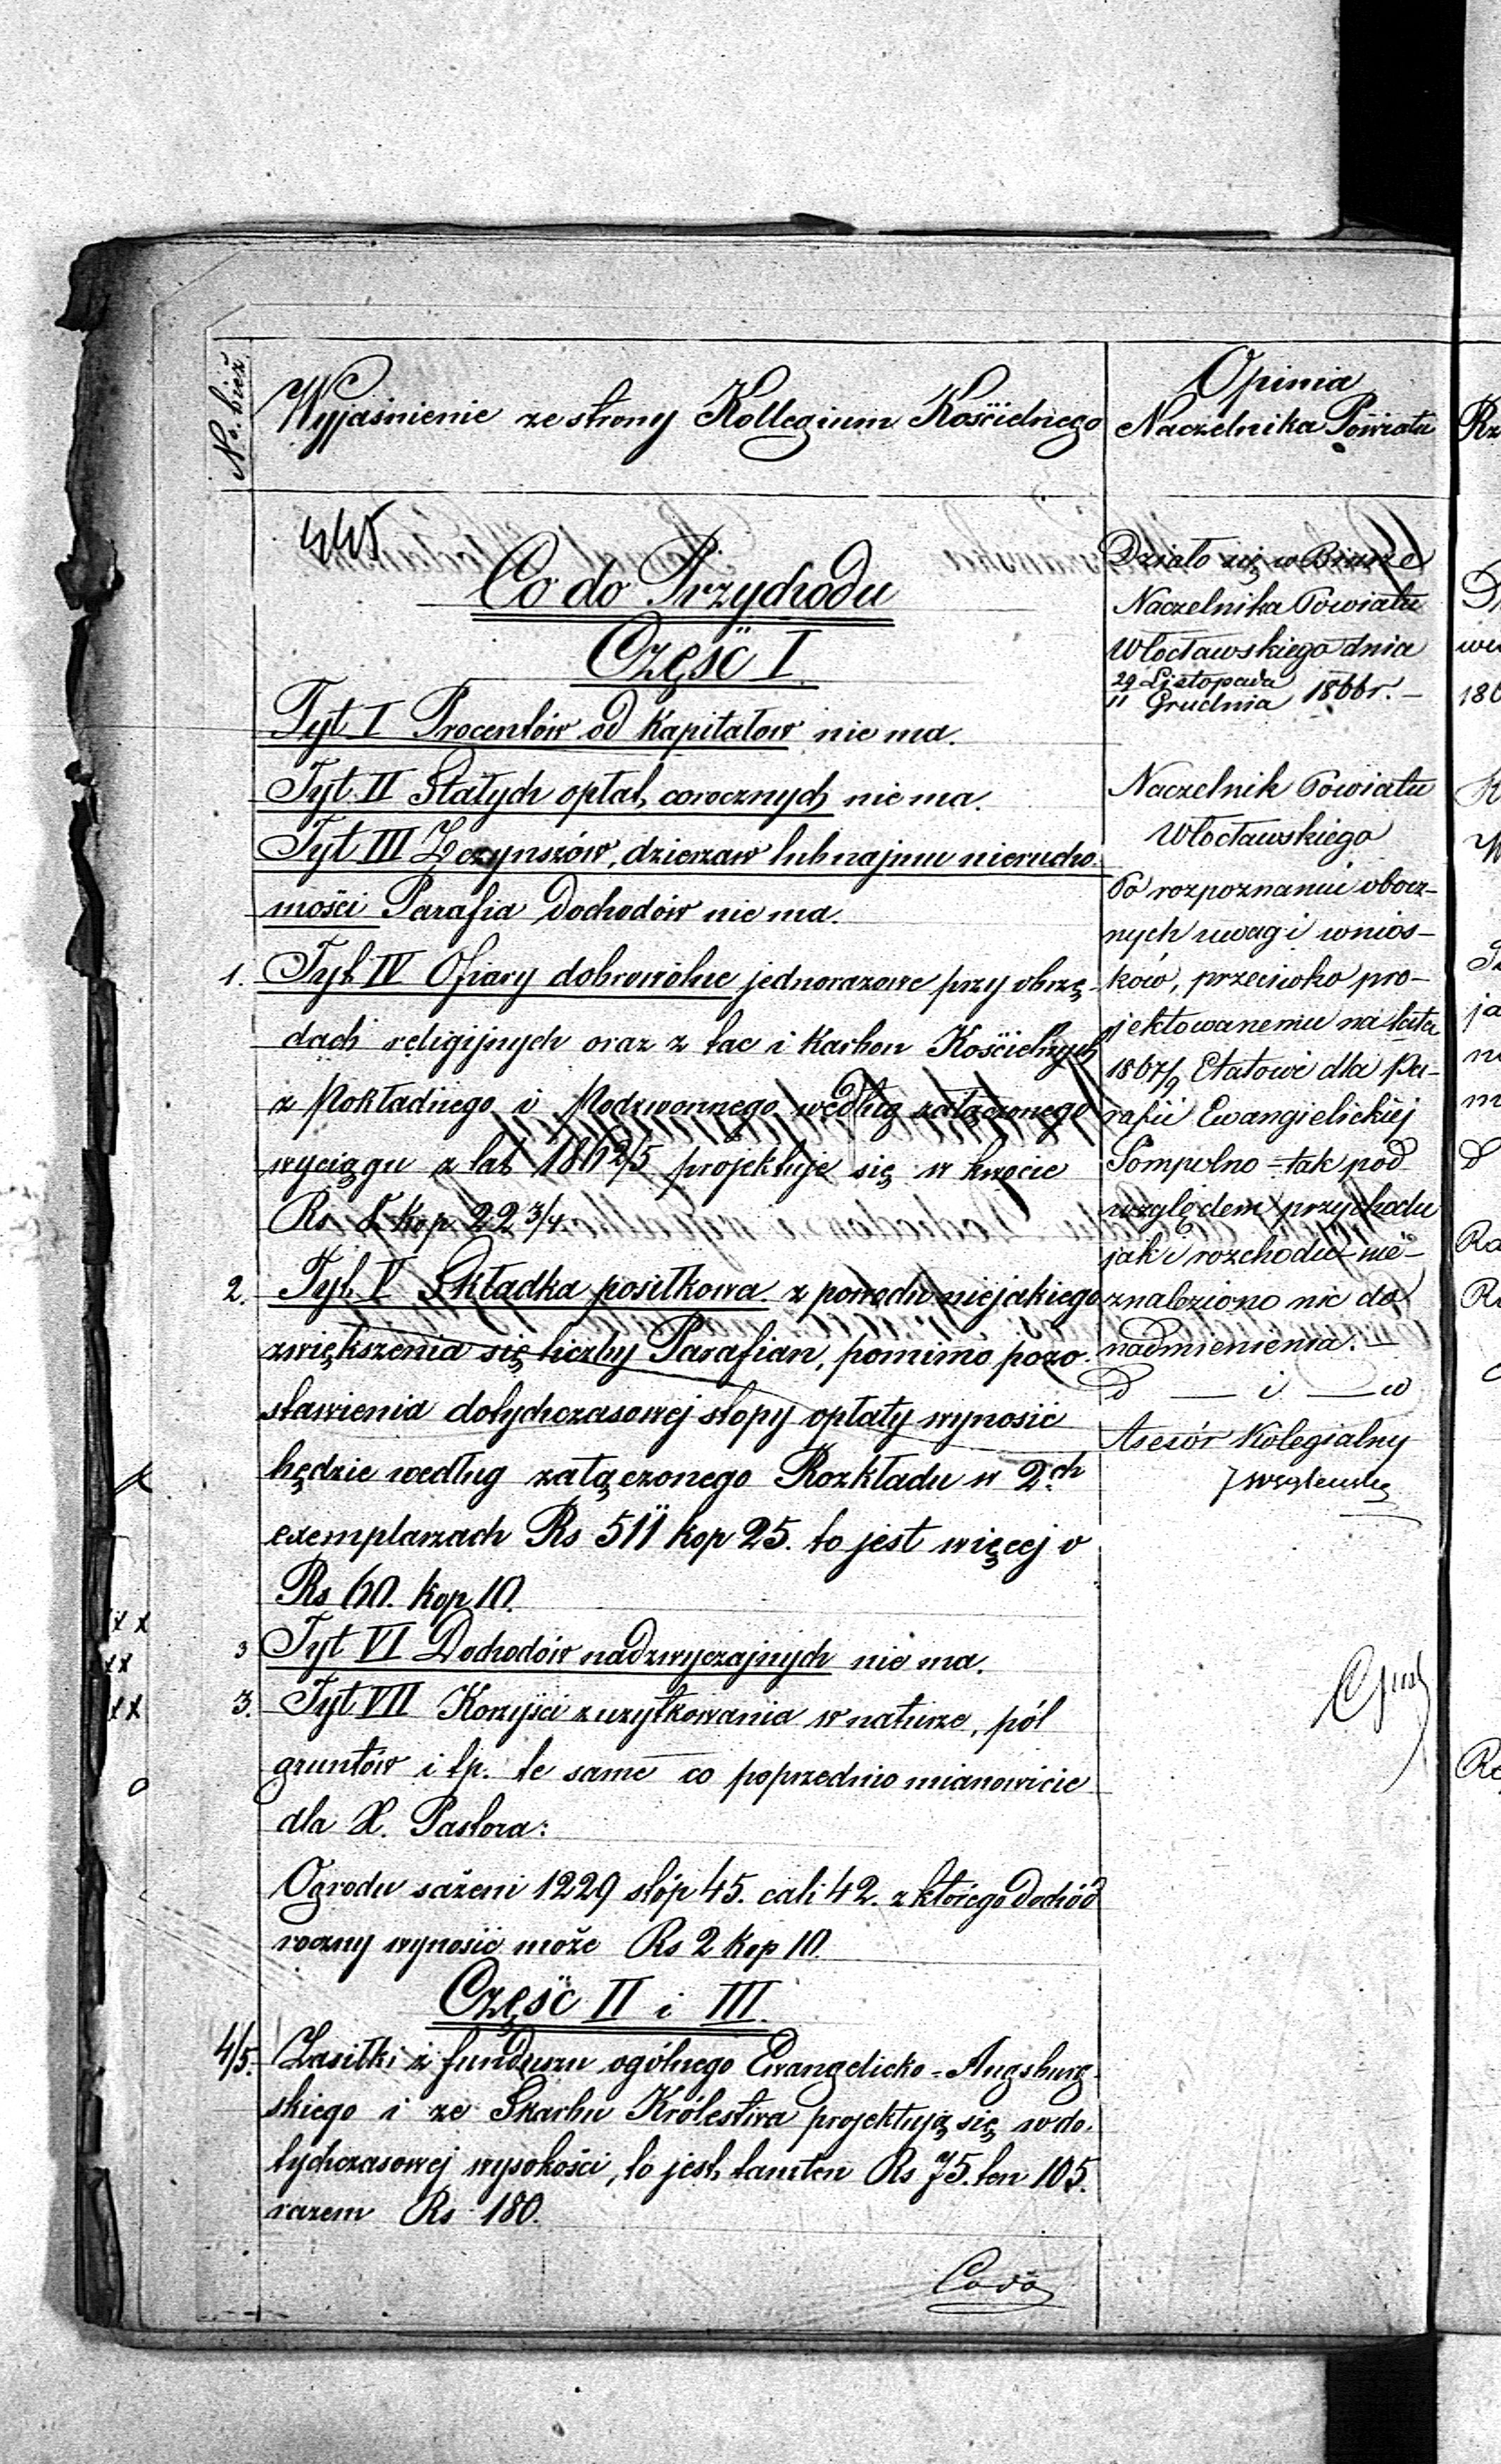 No. bież.
Wyjaśnienie ze strony Kollegium Kościelnego
Opinia
Naczelnika Powiatu
Co do Przychodu
Część I.
Tyt I Procentów od Kapitałow nie ma.
Tyt II Stałych opłat corocznych nie ma.
Tyt III Z czynszów, dzierzaw lub najmu nierucho-
mości Parafia Dochodów nie ma.
1. Tyt IV Ofiary dobrowolne jednorazowe przy obrzę-
dach religijnych oraz z tac i Karbon Kościelnych
z Pokładnego i Podzwonnego według załączonego
wyciągu z lat 1862/5 projektuje się w kwocie
Rs kop. 22 3/4
2. Tyt. V Składka posiłkowa z powodu niejakiego
zwiększenia się liczby Parafian, pomimo pozo-
stawienia dotychczasowej stopy opłaty wynosić
będzie według załączonego Rozkładu w 2ch
exemplarzach Rs 511 kop 25. to jest więcej o
Rs 60. kop 10.
3 Tyt VI Dochodów nadzwyczajnych nie ma.
3. Tyt VII Korzyści z uzytkowania w naturze, pól
gruntów i tp. te same co poprzednio mianowicie
dla X. Pastora:
Ogrodu sażeni 1229 stóp 45. cali 42. z którego dochód
roczny wynosić może Rs 2 kop 10.
Część II i III.
4/5. Zasiłki z funduszu ogólnego Ewangelicko-Augsburg-
skiego i ze Skarbu Królestwa projektują się w do-
tychczasowej wysokości, to jest, tamten Rs 75. ten 105.
razem Rs 180.
Działo się w Biurze
Naczelnika Powiatu
Włocławskiego dnia
29 Listopada
11 Grudnia 1866 r.
Naczelnik Powiatu
Włocławskiego
Po rozpoznaniu obocz-
nych uwag i wnios-
ków, przeciwko pro-
jektowanemu na lata
1867/9 Etatowi dla Pa-
rafii Ewangielickiej
Sompolno - tak pod
względem przychodu
jak i rozchodu - nie
znaleziono nic do
nadmienienia.
Asesór Kolegialny